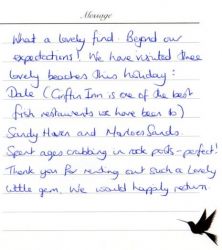 Message
What a lovely find. Beyond our
expectations! We have visited three
lovely beaches this holiday:
Dale (Griffin Inn is one of the best
fish restaurants we have been to)
Sandy Haven and Marloes Sands
Spent ages crabbing in rock pools - perfect!
Thank you for renting out such a lovely
little gem. We would happily return